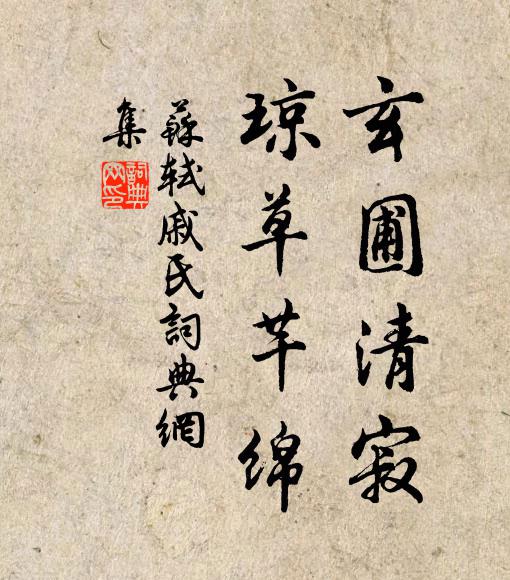 玄圃清寂
琼草芊绵
蘇軾戚氏詞典網
集
詞典網印